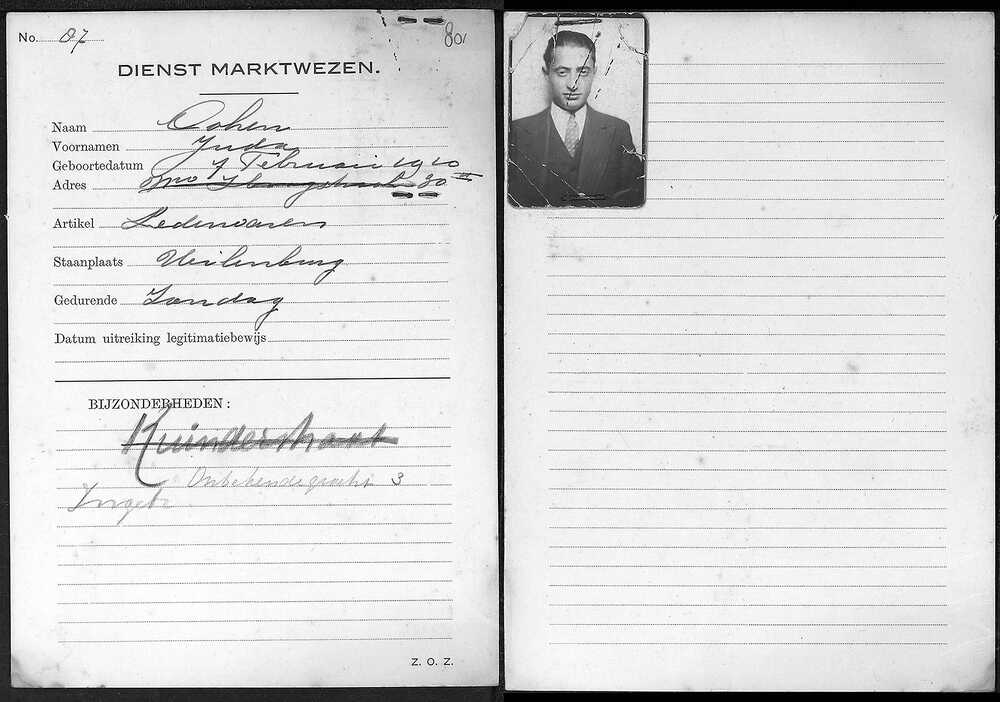 No. 87
801
DIENST MARKTWEZEN.
Naam Cohen
Voornamen Juda
Geboortedatum 7 Februari 1910
Adres 30 III
Artikel Lederwaren
Staanplaats Uilenburg
Gedurende Zondag
Datum uitreiking legitimatiebewijs
BIJZONDERHEDEN:
Kuinderstraat
Onbekendegracht 3
Z. O. Z.